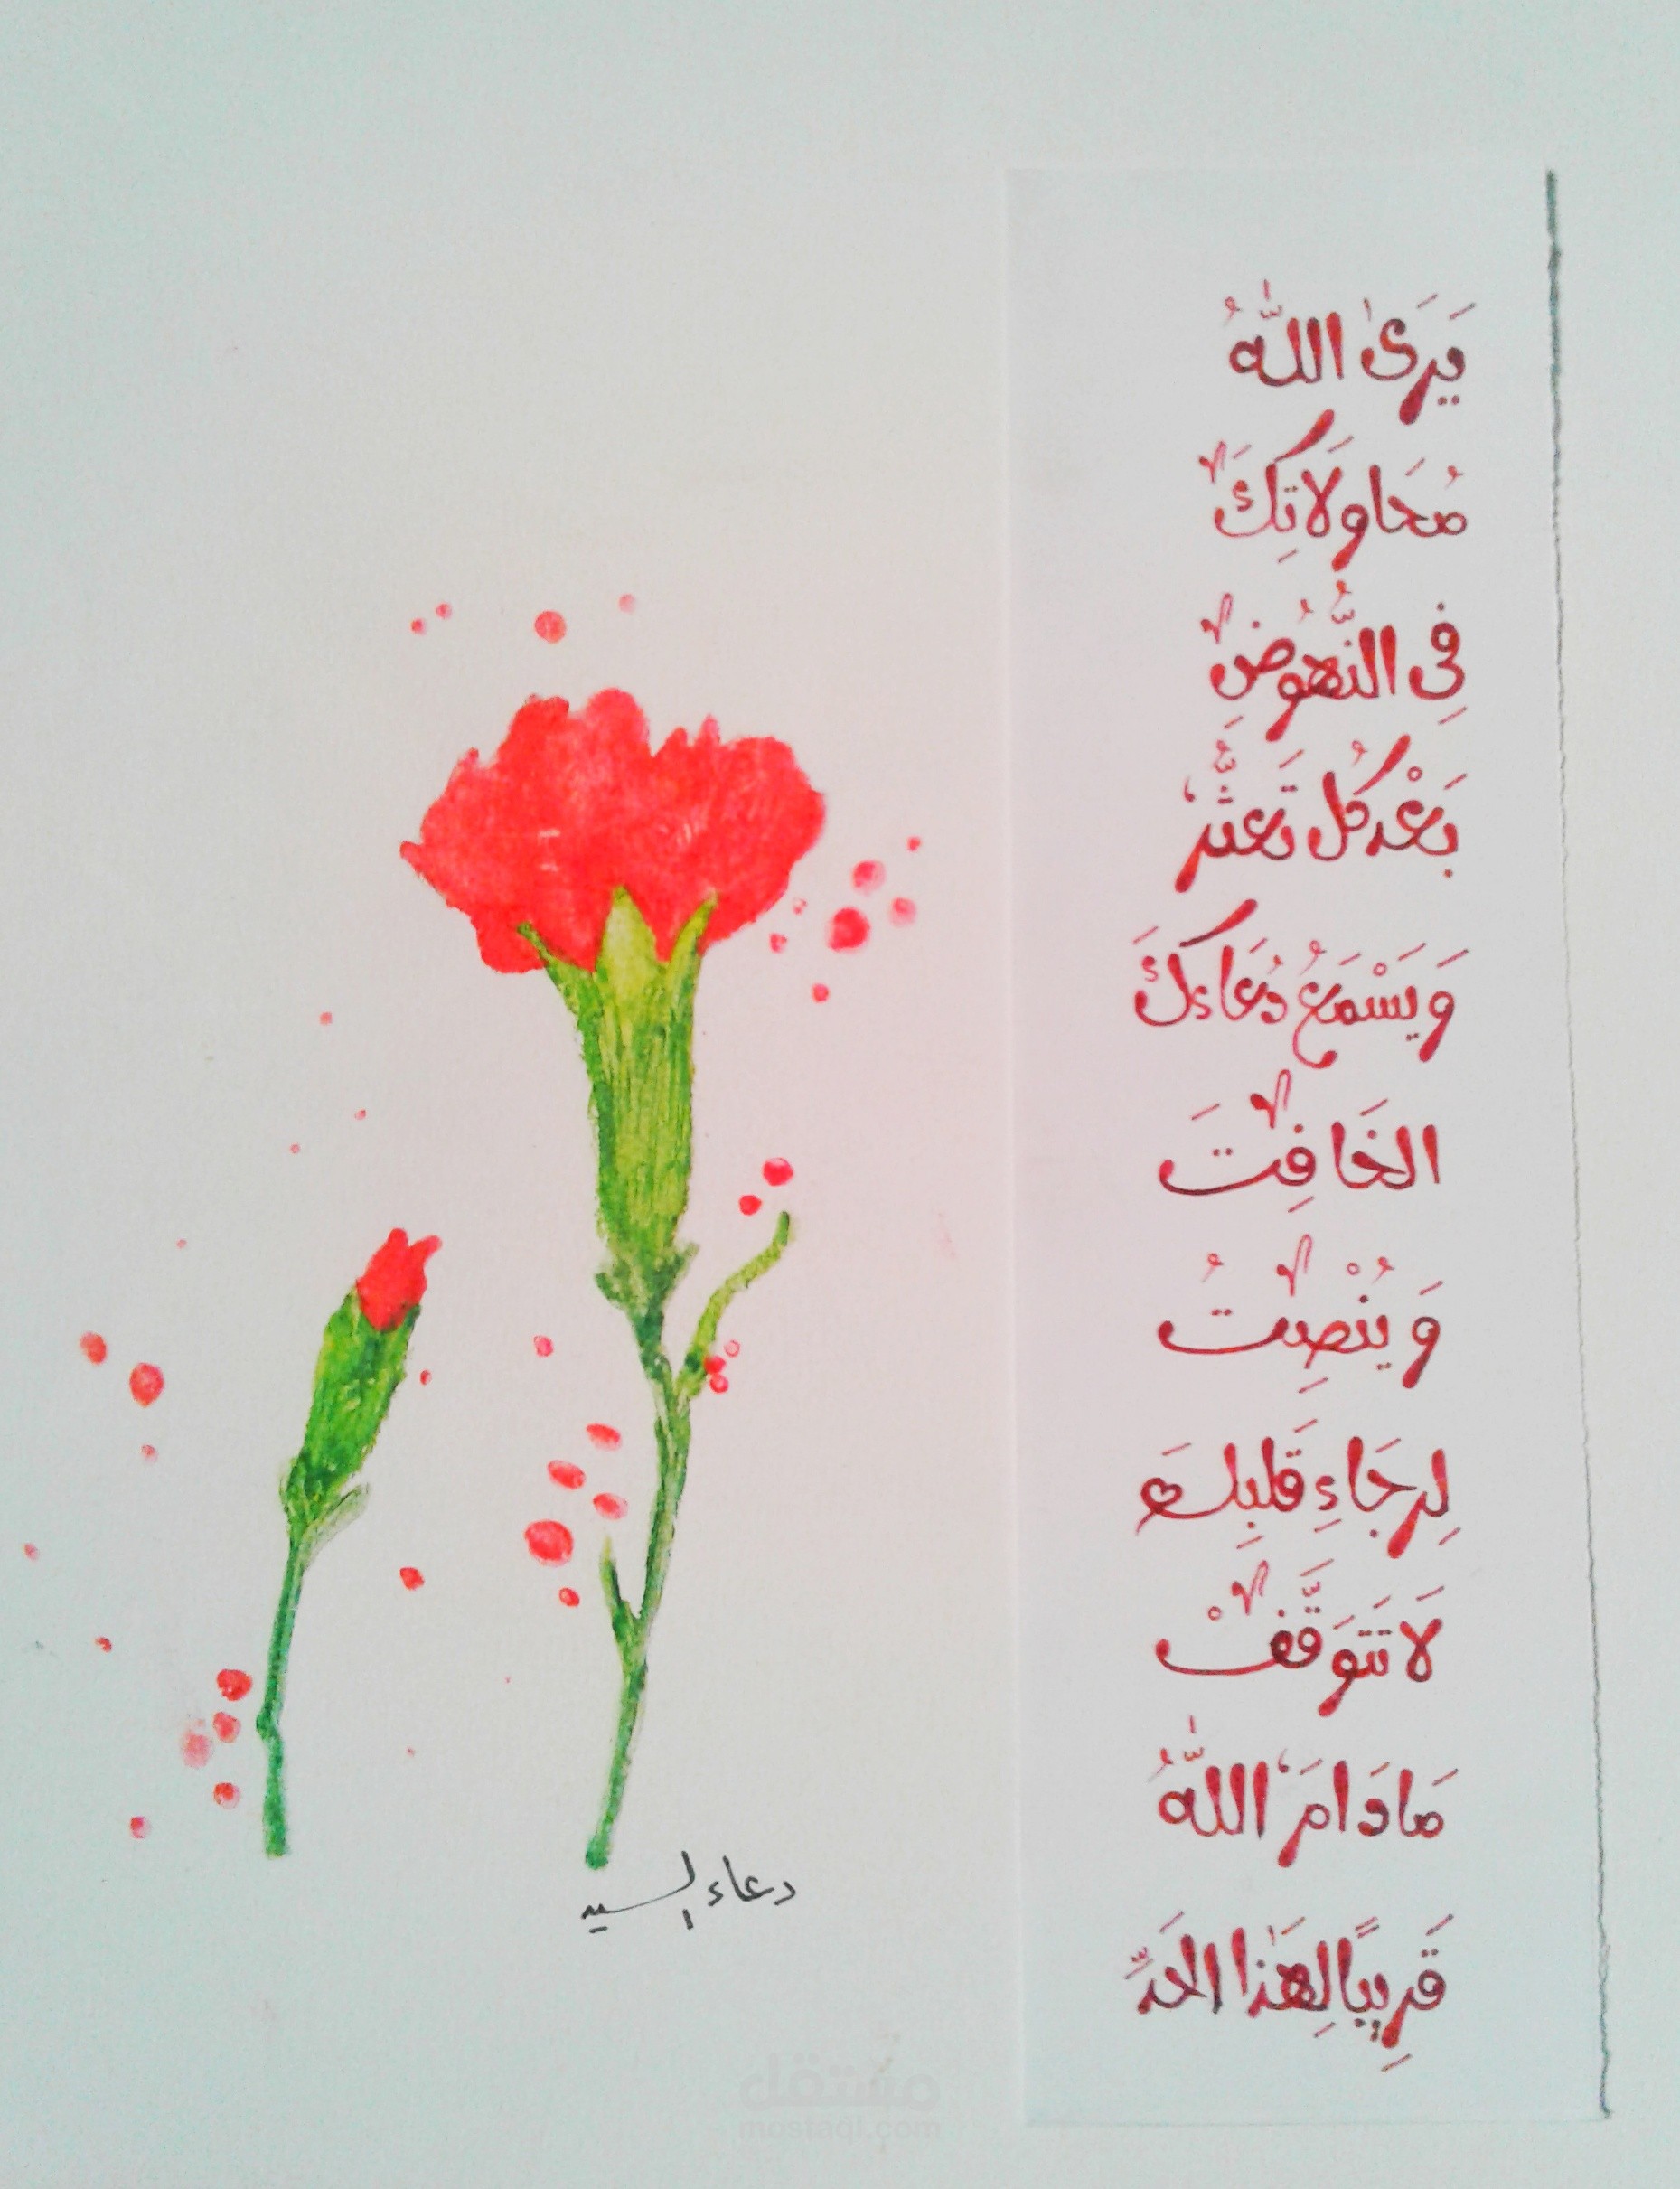 يَرَىٰ اللَّهُ
مُحَاوَلَاتِكَ
فِى النُّهُوضِ
بَعْدَ كُل تَعَثُّر
وَيَسْمَعُ دُعَاءكَ
الخَافِتَ
وَيُنْصِتُ
لِرجَاءِ قَلبِكَ
لَا تَتَوَقَّفْ
مَادَامَ اللَّهُ
قَرِيبًا لِهَٰذا الحَدِّ
دعاء السيد
مستقل
mostaql.com